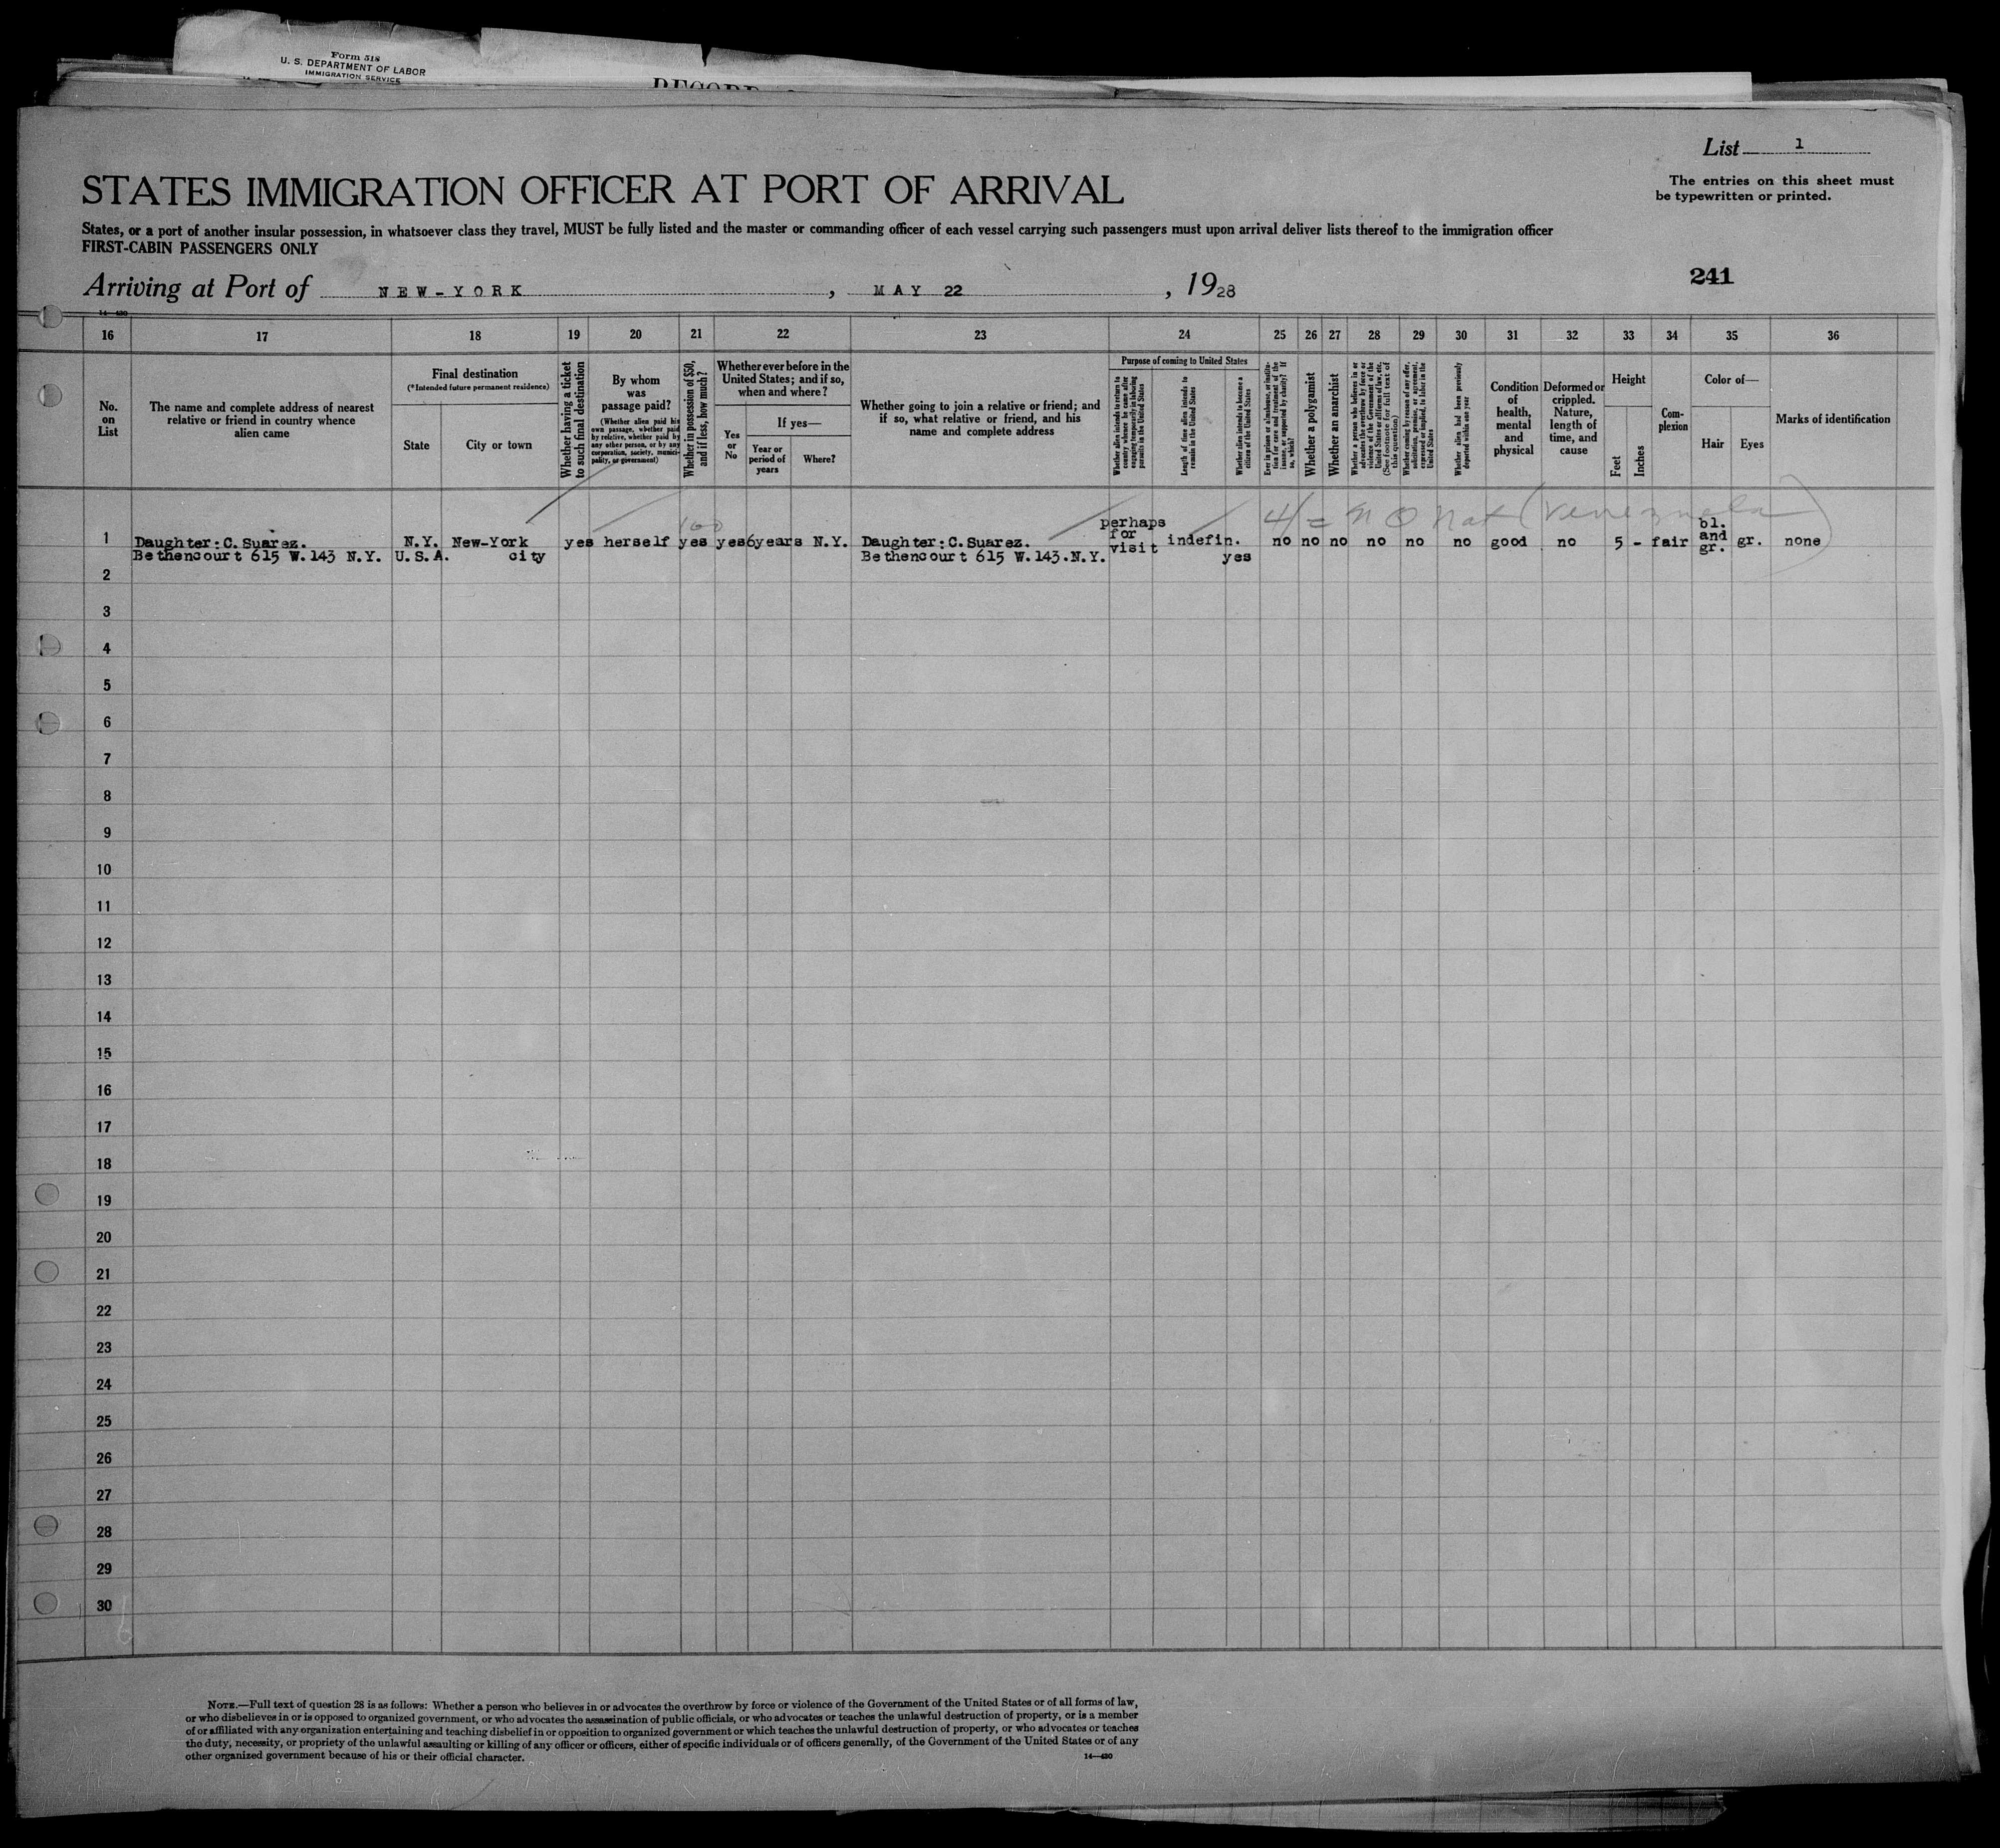 Form 518
U. S. DEPARTMENT OF LABOR
IMMIGRATION SERVICE
RECORD
List 1
STATES IMMIGRATION OFFICER AT PORT OF ARRIVAL
The entries on this sheet must
be typewritten or printed.
States, or a port of another insular possession, in whatsoever class they travel, MUST be fully listed and the master or commanding officer of each vessel carrying such passengers must upon arrival deliver lists thereof to the immigration officer
FIRST-CABIN PASSENGERS ONLY
241
Arriving at Port of NEW-YORK, MAY 22, 1928
14—430
16 17 18 19 20 21 22 23 24 25 26 27 28 29 30 31 32 33 34 35 36
No.
on
List
The name and complete address of nearest
relative or friend in country whence
alien came
Final destination
(*Intended future permanent residence)
State
City or town
Whether having a ticket
to such final destination
By whom
was
passage paid?
(Whether alien paid his
own passage, whether paid
by relative, whether paid by
any other person, or by any
corporation, society, munici-
pality, or government)
Whether in possession of $50,
and if less, how much?
Whether ever before in the
United States; and if so,
when and where?
Yes
or
No
If yes—
Year or
period of
years
Where?
Whether going to join a relative or friend; and
if so, what relative or friend, and his
name and complete address
Purpose of coming to United States
Whether alien intends to return to
country whence he came after
engaging temporarily in laboring
pursuits in the United States
Length of time alien intends to
remain in the United States
Whether alien intends to become a
citizen of the United States
Ever in prison or almshouse, or institu-
tion for care and treatment of the
insane, or supported by charity? If
so, which?
Whether a polygamist
Whether an anarchist
Whether a person who believes in or
advocates the overthrow by force or
violence of the Government of the
United States or all forms of law, etc.
(See footnote for full text of
this question)
Whether coming by reason of any offer,
solicitation, promise, or agreement,
expressed or implied, to labor in the
United States
Whether alien had been previously
deported within one year
Condition
of
health,
mental
and
physical
Deformed or
crippled.
Nature,
length of
time, and
cause
Height
Feet
Inches
Com-
plexion
Color of—
Hair
Eyes
Marks of identification
100
4/= no nat (Venezuela)
1 Daughter: C. Suarez. N.Y. New-York yes herself yes yes 6years N.Y. Daughter: C. Suarez. perhaps for visit indefin. no no no no no no good no 5 - fair bl. and gr. gr. none
Bethencourt 615 W. 143 N.Y. U.S.A. city Bethencourt 615 W. 143.N.Y. yes
2
3
4
5
6
7
8
9
10
11
12
13
14
15
16
17
18
19
20
21
22
23
24
25
26
27
28
29
30
NOTE.—Full text of question 28 is as follows: Whether a person who believes in or advocates the overthrow by force or violence of the Government of the United States or of all forms of law,
or who disbelieves in or is opposed to organized government, or who advocates the assassination of public officials, or who advocates or teaches the unlawful destruction of property, or is a member
of or affiliated with any organization entertaining and teaching disbelief in or opposition to organized government or which teaches the unlawful destruction of property, or who advocates or teaches
the duty, necessity, or propriety of the unlawful assaulting or killing of any officer or officers, either of specific individuals or of officers generally, of the Government of the United States or of any
other organized government because of his or their official character.
14—430